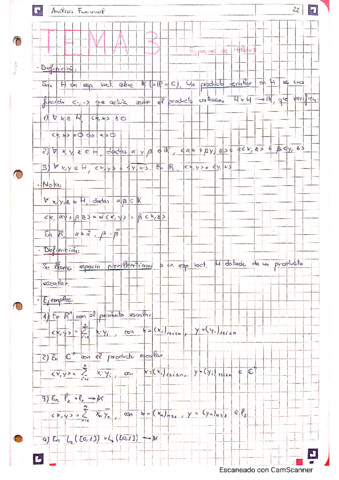 Análisis Funcional 22
TEMA 3
Espacios de Hilbert
· Definición:
Sea H un esp. vect. sobre K (= ℝ o ℂ). Un producto escalar en H es una
función <·,·> que actúa sobre el producto cartesiano H×H → K, que verifica:
1) ∀ x ∈ H, <x,x> ≥ 0
<x,x> = 0 ⇔ x=0
2) ∀ x, y, z ∈ H, dados α y β ∈ K, <αx + βy, z> = α<x,z> + β<y,z>
3) ∀ x,y ∈ H, <x,y> = <y,x>. En ℝ, <x,y> = <y,x>
· Nota:
∀ x,y,z ∈ H, dados α β ∈ K
<x, αy + βz> = α<x,y> + β<x,z>
En ℝ, α=α, β=β
· Definición:
Se llama espacio prehilbertiano a un esp. vect. H dotado de un producto
escalar.
· Ejemplos:
1) En ℝⁿ con el producto escalar
<x,y> = Σ xᵢ yᵢ, con x=(xᵢ)₁≤i≤n, y=(yᵢ)₁≤i≤n
2) En ℂⁿ con el producto escalar
<x,y> = Σ xᵢ yᵢ, con x=(xᵢ)₁≤i≤n, y=(yᵢ)₁≤i≤n ∈ ℂⁿ
3) En ℓ₂ × ℓ₂ → K
<x,y> = Σ xₙ yₙ, con x=(xₙ)ₙ≥₁, y=(yₙ)ₙ≥₁ ∈ ℓ₂
4) En L₂([0,1]) × L₂([0,1]) → K
Escaneado con CamScanner